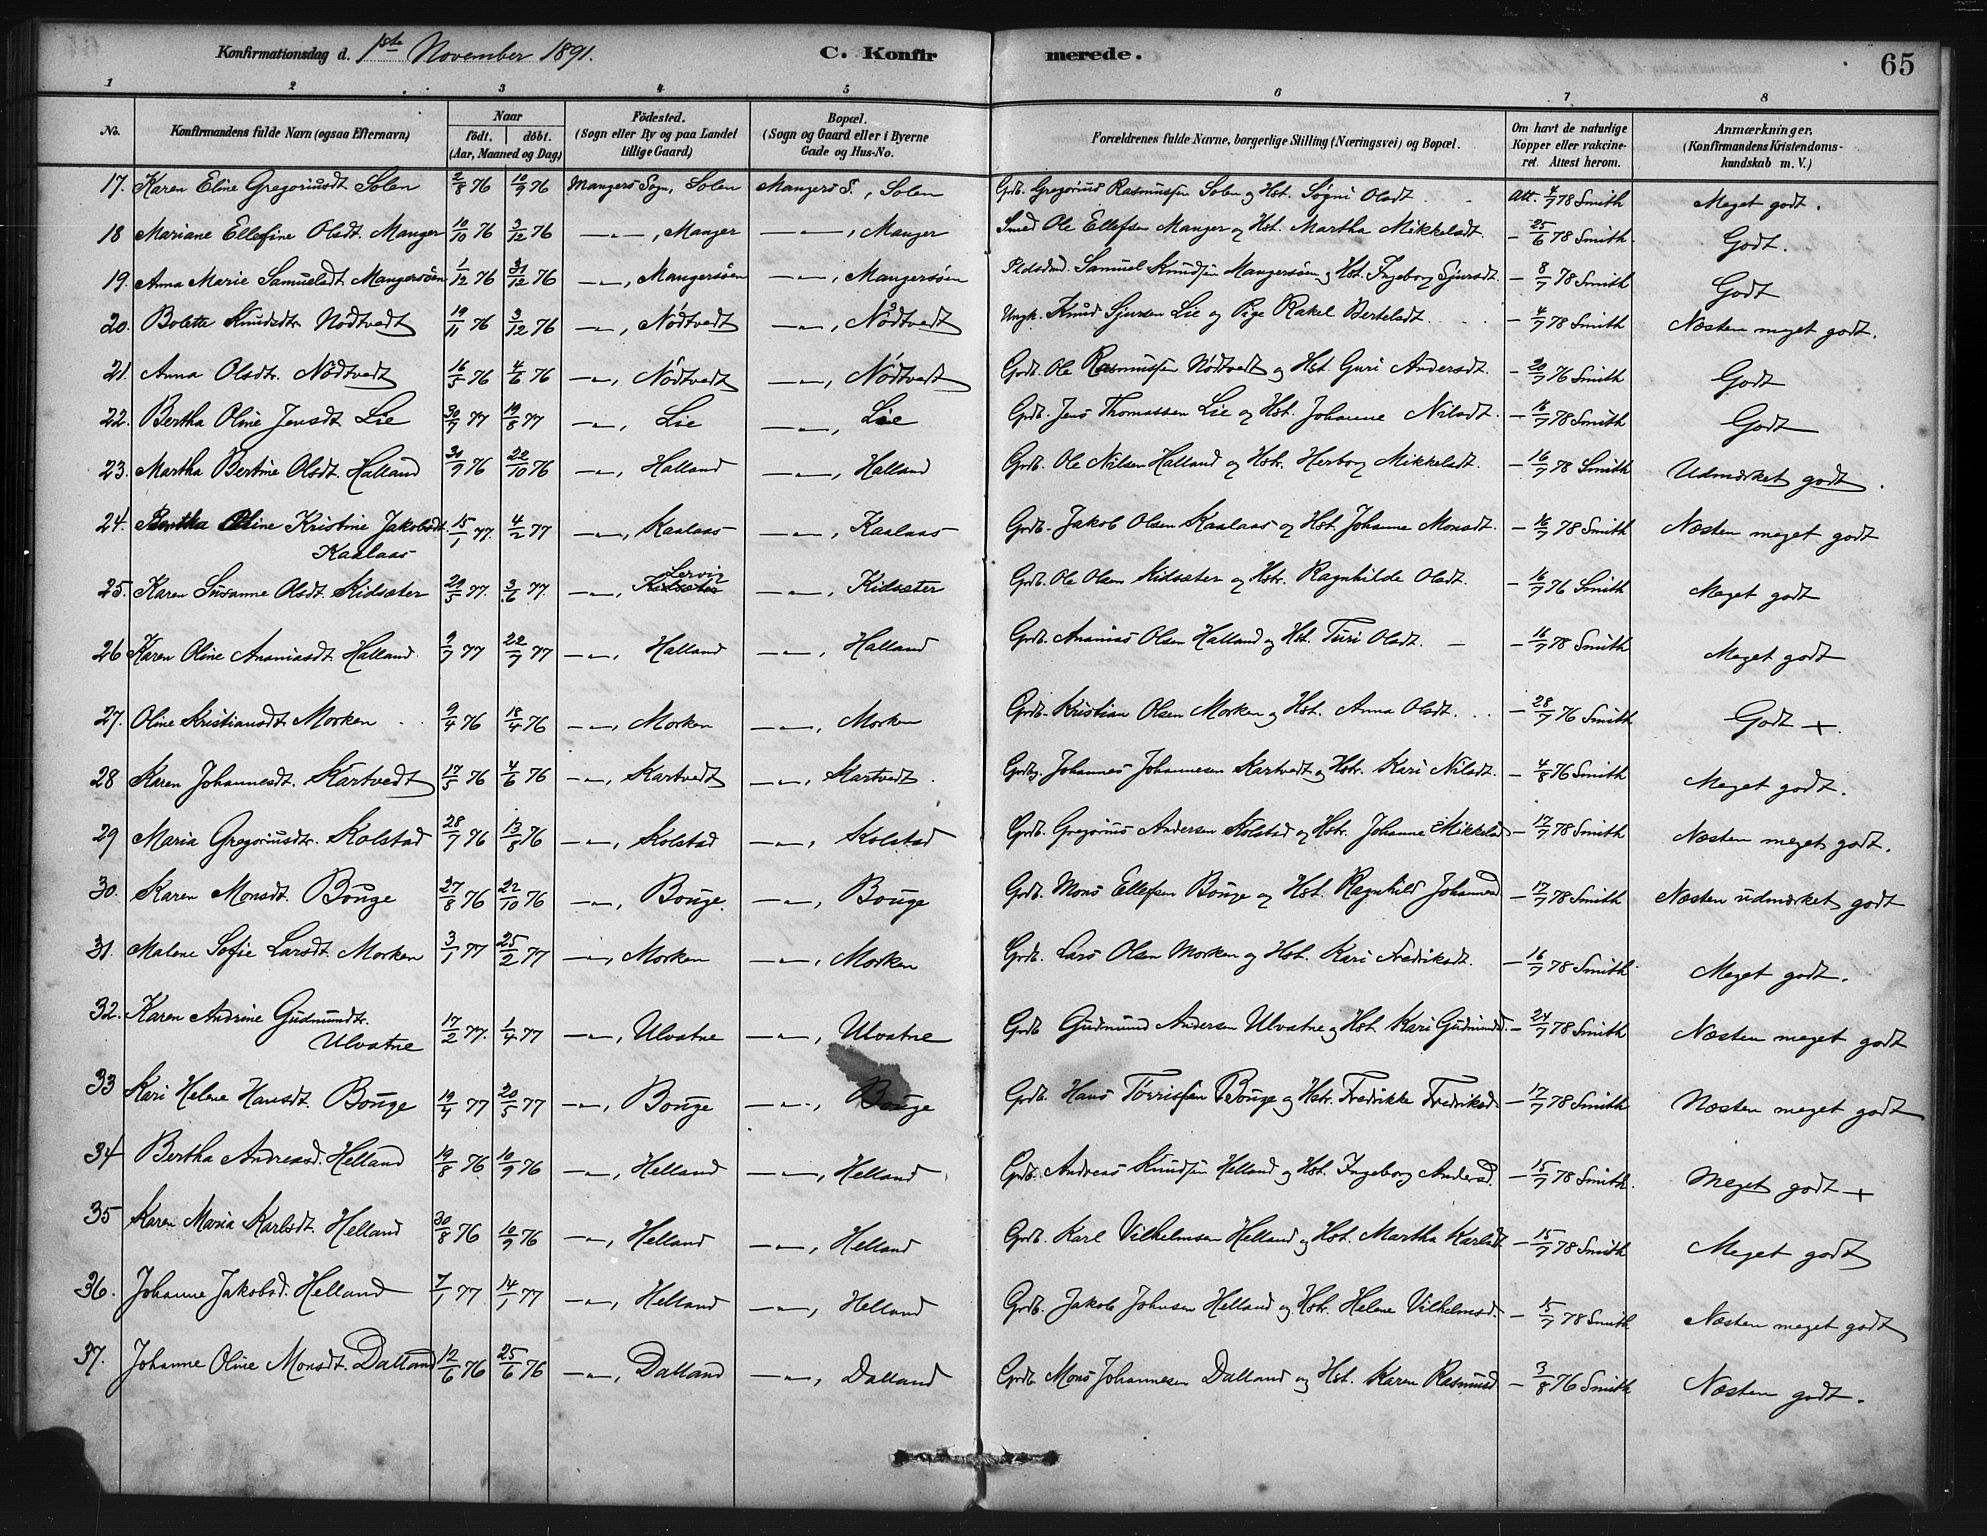 Konfirmationsdag d. 1ste November 1891. C. Konfirmerede. 65
1 2 3 4 5 6 7 8
No. Konfirmandens fulde Navn (ogsaa Efternavn) Naar födt. döbt. (Aar, Maaned og Dag) Födested. (Sogn eller By og paa Landet tillige Gaard) Bopæl. (Sogn og Gaard eller i Byerne Gade og Hus-No.) Forældrenes fulde Navne, borgerlige Stilling (Næringsvei) og Bopæl. Om havt de naturlige Kopper eller vakcineret. Attest herom. Anmærkninger. (Konfirmandens Kristendomskundskab m. V.)
17. Karen Eline Gregoriusdt. Solen 2/8 76 10/9 76 Mangers Sogn, Solen Mangers S., Solen Grdb. Gregorius Rasmussen Solen og Hst. Sögni Olsdt. Att. 4/7 78 Smith Meget godt.
18 Mariane Ellefine Olsdt. Manger 10/10 76 3/12 76 —"—, Manger —"—, Manger Smed Ole Ellefsen Manger og Hst. Martha Mikkelsdt. — 25/6 78 Smith. Godt.
19. Anna Marie Samuelsdt. Mangersöen 1/12 76 31/12 76 —"—, Mangersöen —"—, Mangersöen Samuel Knudsen Mangersöen og Hst. Ingeborg Sjursdt. — 8/7 78 Smith Godt
20. Bolette Knudsdtr. Nödtvedt 19/11 76 3/12 76 —"—, Nödtvedt —"—, Nödtvedt Ungk. Knud Sjursen Lie og Pige Rakel Bertelsdt. — 4/7 78 Smith Næsten meget godt.
21. Anna Olsdtr. Nödtvedt 16/5 76 4/6 76 —"—, Nödtvedt —"—, Nödtvedt Grdb. Ole Rasmussen Nödtvedt og Hst. Guri Andersdt. — 20/7 76 Smith Godt
22. Bertha Oline Jensdt. Lie 30/7 77 19/8 77 —"—, Lie —"—, Lie Grdb. Jens Thomassen Lie og Hst. Johanne Nilsdt. — 16/7 78 Smith Godt
23. Martha Bertine Olsdt. Halland 30/9 76 22/10 76 —"—, Halland —"—, Halland Grdb. Ole Nilsen Halland og Hstr. Herborg Mikkelsdt. — 16/7 78 Smith Udmærket godt.
24. Bertha Oline Kristine Jakobsdt. 15/1 77. 4/2 77 —"—, Kaalaas —"—, Kaalaas Grdb. Jakob Olsen Kaalaas og Hst. Johanne Monsdt. — 16/7 78 Smith Næsten meget godt
Kaalaas
Lervig
25. Karen Susanne Olsdt. Kidsæter 20/5 77. 3/6 77. —"—, Kidsæter —"—, Kidsæter Grdb. Ole Olsen Kidsæter og Hstr. Ragnhilde Olsdt. — 16/7 76 Smith Meget godt
26 Karen Oline Ananiasdt. Halland 9/7 77 22/7 77 —"—, Halland —"—, Halland Grdb. Ananias Olsen Halland og Hst. Turi Olsdt. — 16/7 78 Smith Meget godt
27. Oline Kristiansdt. Morken 9/4 76 18/4 76 —"—, Morken —"—, Morken Grdb. Kristian Olsen Morken og Hst. Anna Olsdt. — 28/7 76 Smith Godt +.
28 Karen Johannesdt. Kartvedt 17/5 76 4/6 76 —"—, Kartvedt —"—, Kartvedt. Johannes Johannesen Kartvedt og Hstr. Kari Nilsdt. — 4/8 76 Smith Meget godt.
29 Maria Gregoriusdtr. Kolstad 28/7 76 13/8 76 —"—, Kolstad —"—, Kolstad Grdb. Gregorius Andersen Kolstad og Hstr. Johanne Mikkelsd — 17/7 78 Smith Næsten meget godt.
30. Karen Monsdt. Bouge 27/8 76 22/10 76 —"—, Bouge. —"—, Bouge Grdb. Mons Ellefsen Bouge og Hst. Ragnhild Johannesd — 17/7 78 Smith Næsten udmærket godt
31. Malene Sofie Larsdt. Morken 3/1 77 25/2 77 —"—, Morken —"—, Morken Grdb. Lars Olsen Morken og Hst. Kari Fredriksdt. — 16/7 78 Smith Meget godt.
32. Karen Andrine Gudmundtr. 17/2 77. 1/4 77 —"—, Ulvatne —"—, Ulvatne Grdb Gudmund Andersen Ulvatne og Hst. Kari Gudmundsd. — 24/7 78 Smith Næsten meget godt
Ulvatne
33 Kari Helene Hansdt. Bouge 19/4 77 20/5 77 —"—, Bouge —"—, Bouge Grdb. Hans Torrissen Bouge og Hstr. Fredrikke Fredriksd. — 17/7 78 Smith Næsten meget godt
34 Bertha Andreasd. Helland 19/8 76. 10/9 76 —"—, Helland —"—, Helland Grdb. Andreas Knudsen Helland og Hst. Ingeborg Andersd. — 15/7 78 Smith. Meget godt +
35 Karen Maria Karlsdt. Helland 30/8 76 10/9 76 —"—, Helland —"—, Helland Grdb. Karl Vilhelmsen Helland og Hst. Martha Karlsdt — 15/7 78 Smith Meget godt
36. Johanne Jakobsd. Helland 7/1 77 14/1 77 —"—, Helland —"—, Helland Grdb. Jakob Johnsen Helland og Hstr. Helene Vilhelmsd. — 15/7 78 Smith Næsten meget godt
37. Johanne Oline Monsdt. Dalland 12/6 76 25/6 76 —"—, Dalland —"—, Dalland Grdb. Mons Johannesen Dalland og Hst. Karen Rasmusd — 3/8 76 Smith Næsten godt.